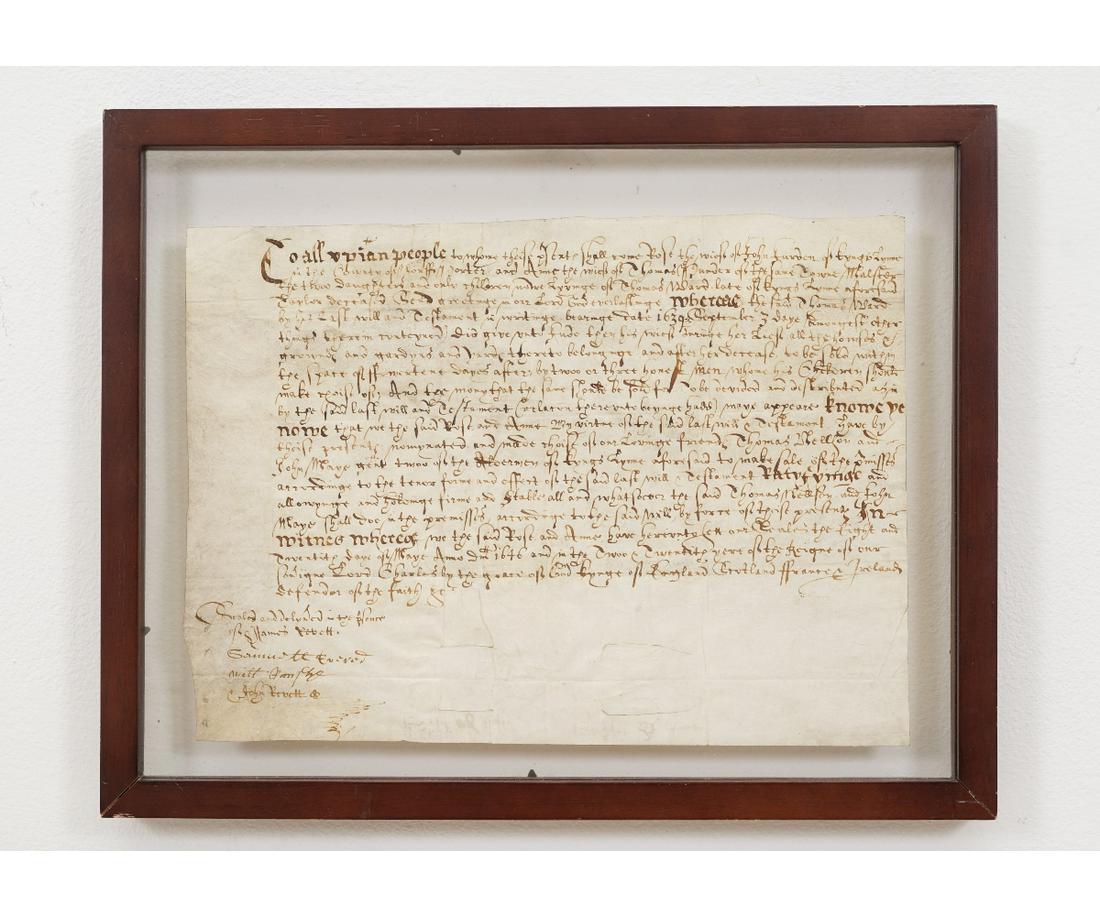 To all xpian people to whome theis psents shall come Rose the wief of John of Kyngs Lynne
in the County of Norff Porter and Anne the wief of Thomas Punder of the same Towne
the twoo daughters and only children of Thomas Ward late of Kyngs Lynne aforesaid
Taylor deceased Send greetinge in our Lord God everlastinge Whereas the said Thomas Ward
by his last will and Testament in writinge bearinge date 1639 September day Amongest other
things therein conteyned Did give unto his wief duringe her lief all the houses &
grounds and and yards thereto belonginge and after her decease to be sold within
the space of fowertene dayes after by twoo or three honest men whome his Children should
make choise of And the mony that the same should be sould for to be devided and distributed as in
by the said last will and Testament relacon thereunto beynge hadd maye appeare Knowe ye
nowe that we the said Rose and Anne By virtue of the said last will & Testament have by
theise presents nominated and made choise of our Lovinge friends Thomas and
John Maye gent twoo of the Aldermen of Kyngs Lynne aforesaid to make sale of the pmisses
accordinge to the tenor forme and effect of the said last will and Testament Ratyfyinge and
allowynge and holdinge firme and stable all and whatsoever the said Thomas and John
Maye shall doe in the premisses accordinge to the said Will by force of theise presents In
witnes whereof we the said Rose and Anne have hereunto sett our Seales the Eight and
Twentith day of Maye Anno dm 1646 and in the Twoo & Twentith yere of the Reigne of our
Sovigne Lord Charles by the grace of God Kynge of England Scotland ffrance & Ireland
defendor of the faith &c
Sealed and delived in the psence
of James Revett
Samuell Evered
Will
John Revett